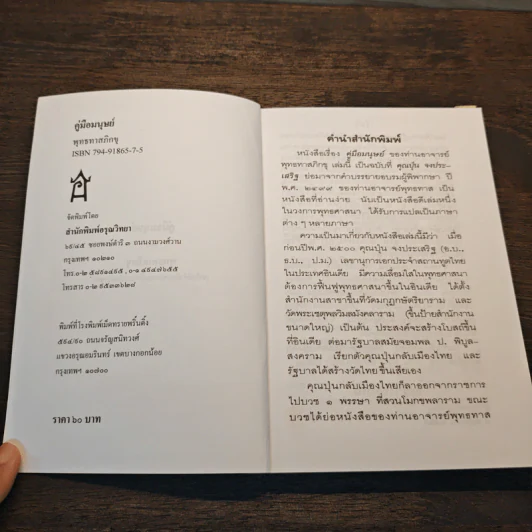 คู่มือมนุษย์
พุทธทาสภิกขุ
ISBN 794-91865-7-5
จัดพิมพ์โดย
สำนักพิมพ์อรุณวิทยา
๖๙/๔๕ ซอยพงษ์ดำริ ๓ ถนนงามวงศ์วาน
กรุงเทพฯ ๑๐๒๑๐
พิมพ์ที่โรงพิมพ์เม็ดทรายพริ้นติ้ง
๕๙๔/๙๐ ถนนจรัญสนิทวงศ์
แขวงอรุณอมรินทร์ เขตบางกอกน้อย
กรุงเทพฯ ๑๐๗๐๐
ราคา ๖๐ บาท
คำนำสำนักพิมพ์
หนังสือเรื่อง คู่มือมนุษย์ ของท่านอาจารย์
พุทธทาสภิกขุ เล่มนี้ เป็นฉบับที่ คุณปุ่น จงประ-
เสริฐ ย่อมาจากคำบรรยายอบรมผู้พิพากษา ปี
พ.ศ. ๒๔๙๙ ของท่านอาจารย์พุทธทาส เป็น
หนังสือที่อ่านง่าย นับเป็นหนังสือดีเล่มหนึ่ง
ในวงการพุทธศาสนา ได้รับการแปลเป็นภาษา
ต่าง ๆ หลายภาษา
ความเป็นมาเกี่ยวกับหนังสือเล่มนี้มีว่า เมื่อ
ก่อนปีพ.ศ. ๒๕๐๐ คุณปุ่น จงประเสริฐ (อ.บ.,
ธ.บ., ป.ม.) เลขานุการเอกประจำสถานทูตไทย
ในประเทศอินเดีย มีความเลื่อมใสในพุทธศาสนา
ต้องการฟื้นฟูพุทธศาสนาขึ้นในอินเดีย ได้ตั้ง
สำนักงานสาขาขึ้นที่วัดมกุฏกษัตริยาราม และ
วัดพระเชตุพลวิมลมังคลาราม (ขึ้นป้ายสำนักงาน
ขนาดใหญ่) เป็นต้น ประสงค์จะสร้างโบสถ์ขึ้น
ที่อินเดีย ต่อมารัฐบาลสมัยจอมพล ป. พิบูล-
สงคราม เรียกตัวคุณปุ่นกลับเมืองไทย และ
รัฐบาลได้สร้างวัดไทยขึ้นเสียเอง
คุณปุ่นกลับเมืองไทยก็ลาออกจากราชการ
ไปบวช ๑ พรรษา ที่สวนโมกขพลาราม ขณะ
บวชได้ย่อหนังสือของท่านอาจารย์พุทธทาส